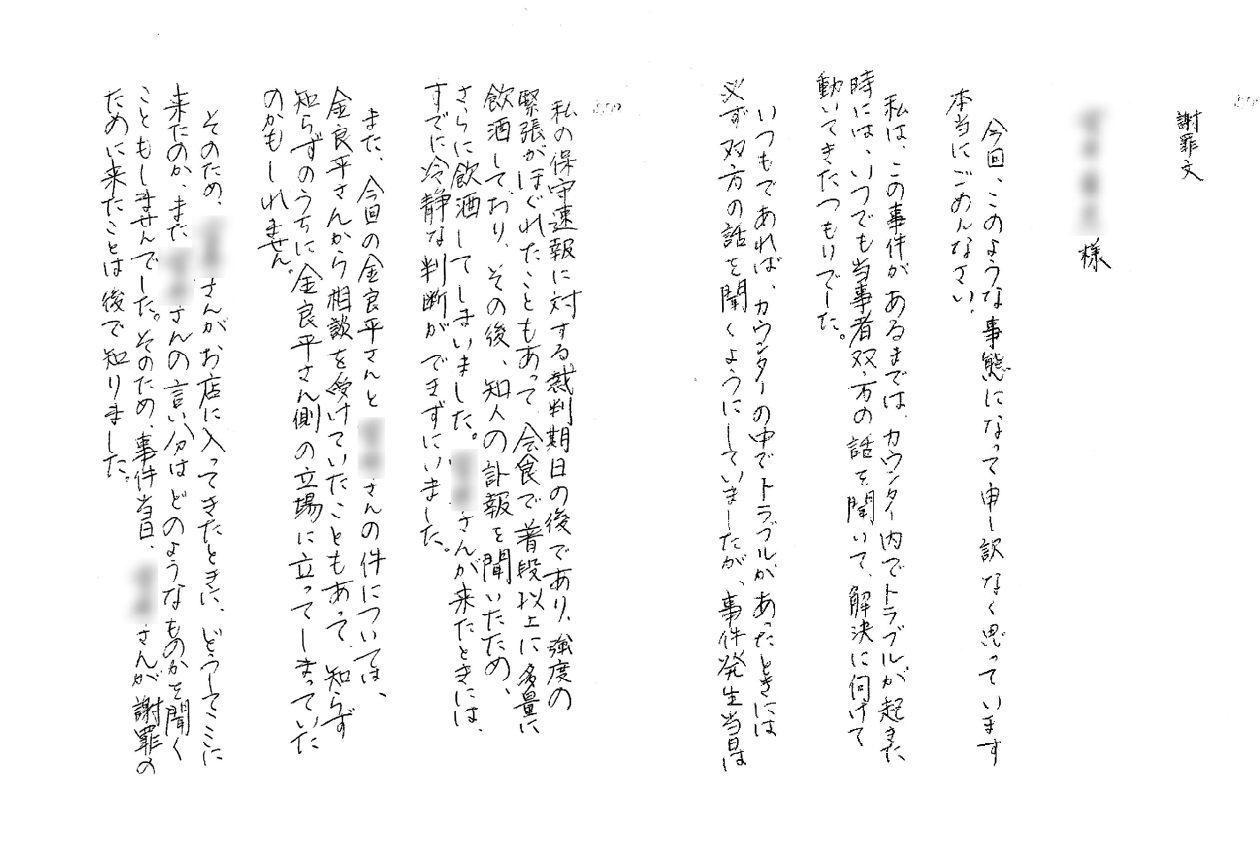 謝罪文
様
今回、このような事態になって申し訳なく思っています
本当にごめんなさい。
私は、この事件があるまでは、カウンター内でトラブルが起きた
時には、いつでも当事者双方の話を聞いて、解決に向けて
動いてきたつもりでした。
いつもであれば、カウンターの中でトラブルがあったときには
必ず双方の話を聞くようにしていましたが、事件発生当日は
私の保守速報に対する裁判期日の後であり、強度の
緊張がほぐれたこともあって、会食で普段以上に多量に
飲酒しており、その後、知人の訃報を聞いたため、
さらに飲酒してしまいました。さんが来たときには、
すでに冷静な判断ができずにいました。
また、今回の金良平さんとさんの件については、
金良平さんから相談を受けていたこともあって、知らず
知らずのうちに金良平さん側の立場に立ってしまっていた
のかもしれません。
そのため、さんがお店に入ってきたときに、どうしてここに
来たのか、またさんの言い分はどのようなものかを聞く
こともしませんでした。そのため、事件当日、さんが謝罪の
ために来たことは後で知りました。